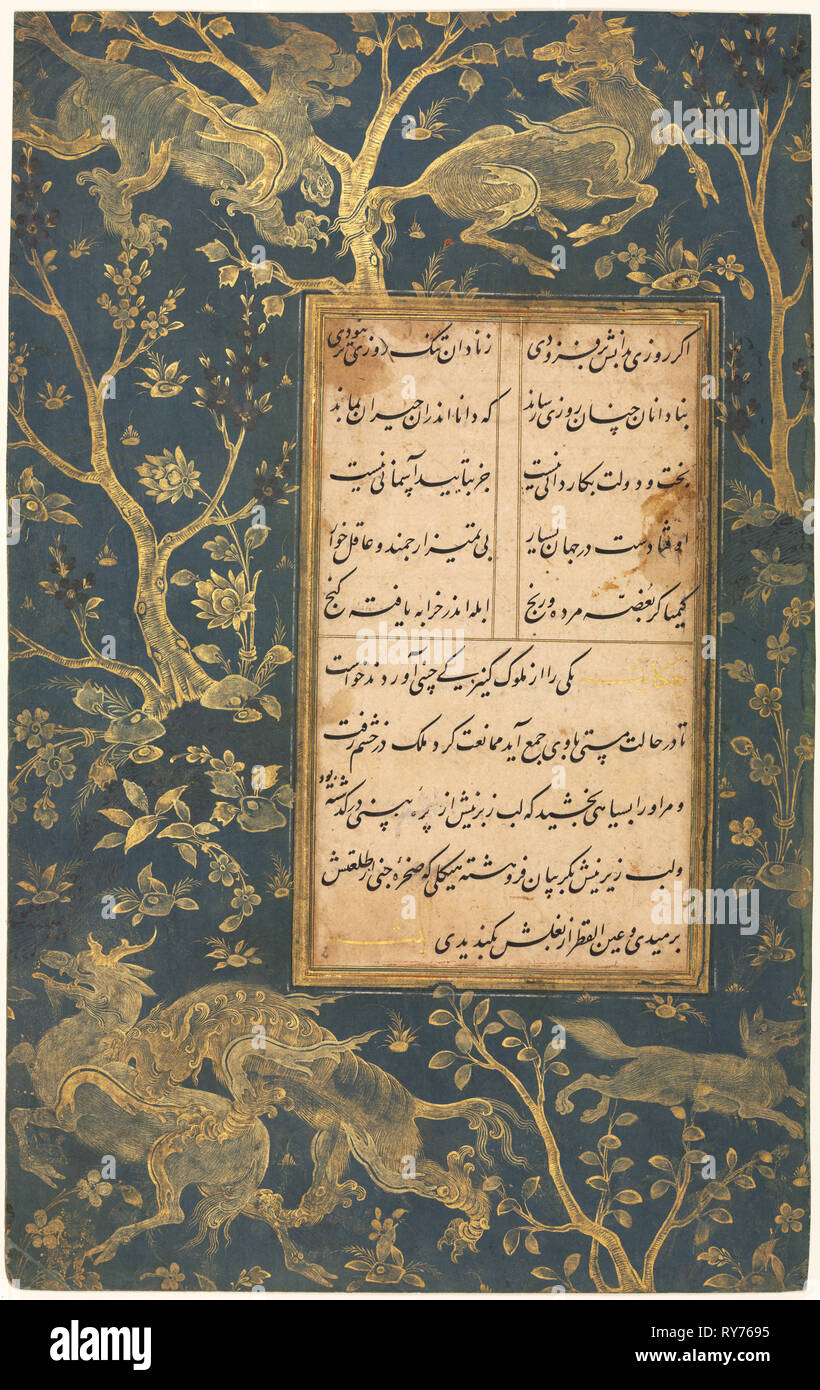 اگر روزی بدانش بر فزودی ز نادان تنگ روزی تر نبودی
بنادانان چنان روزی رساند که دانا اندران حیران بماند
بخت و دولت بکاردانی نیست جز بتایید آسمانی نیست
اوفتادست در جهان بسیار بی تمیز ارجمند و عاقل خوار
کیمیاگر بغصه مرده و رنج ابله اندر خرابه یافته گنج
حکایت یکی را از ملوک کنیزکی چینی آوردند خواست
تا در حالت مستی با وی جمع آید ممانعت کرد ملک در خشم رفت
و مر او را بسیاهی بخشید که لب زبرینش از پرهٔ بینی در گذشته بود
ولب زیرینش بگریبان فرو هشته هیکلی که صخرهٔ جنی از طلعتش
برمیدی و عین القطر از بغلش بگندیدی
alamy
Image ID: RY7695
www.alamy.com